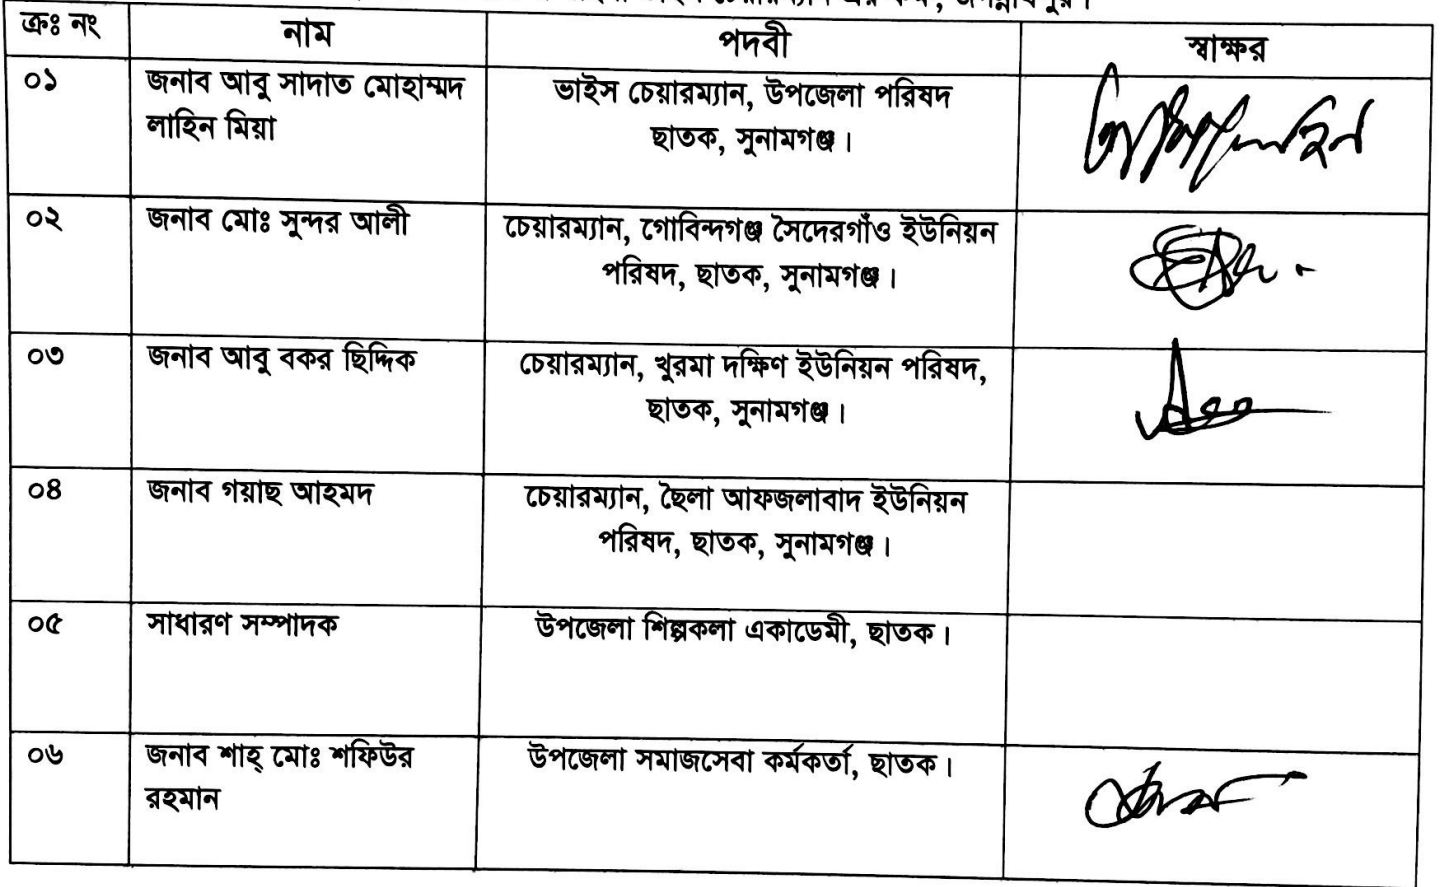 ক্রঃ নং নাম পদবী স্বাক্ষর
০১ জনাব আবু সাদাত মোহাম্মদ ভাইস চেয়ারম্যান, উপজেলা পরিষদ
লাহিন মিয়া ছাতক, সুনামগঞ্জ।
০২ জনাব মোঃ সুন্দর আলী চেয়ারম্যান, গোবিন্দগঞ্জ সৈদেরগাঁও ইউনিয়ন
পরিষদ, ছাতক, সুনামগঞ্জ।
০৩ জনাব আবু বকর ছিদ্দিক চেয়ারম্যান, খুরমা দক্ষিণ ইউনিয়ন পরিষদ,
ছাতক, সুনামগঞ্জ।
০৪ জনাব গয়াছ আহমদ চেয়ারম্যান, ছৈলা আফজলাবাদ ইউনিয়ন
পরিষদ, ছাতক, সুনামগঞ্জ।
০৫ সাধারণ সম্পাদক উপজেলা শিল্পকলা একাডেমী, ছাতক।
০৬ জনাব শাহ্ মোঃ শফিউর উপজেলা সমাজসেবা কর্মকর্তা, ছাতক।
রহমান